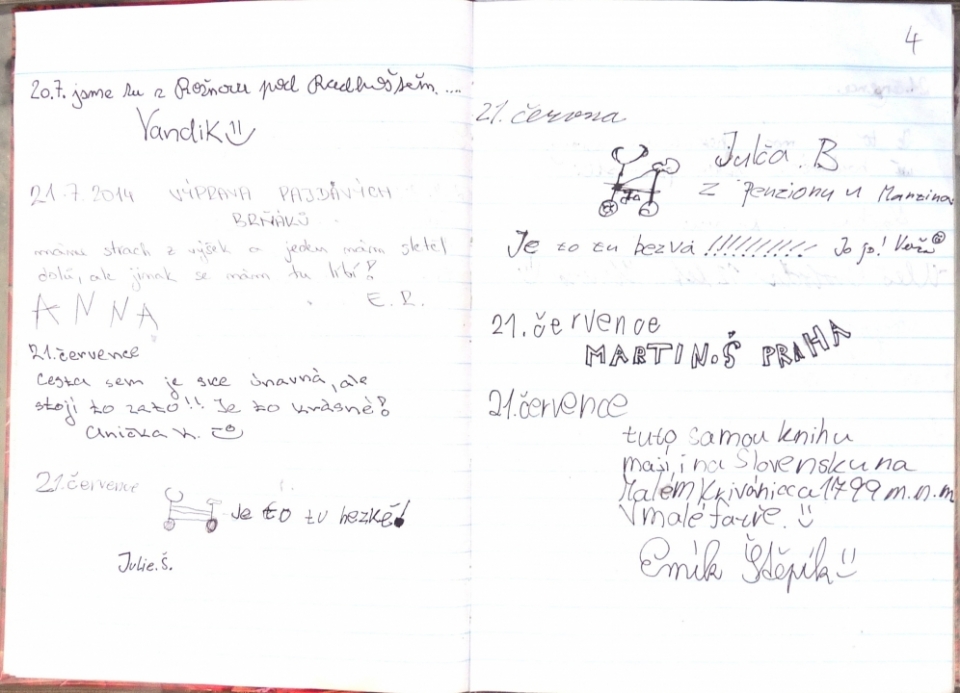 20.7. jsme tu z Rožnova pod Radhoštěm....
Vandík
21.7.2014 VÝPRAVA PAJDAVÝCH
BRŇÁKŮ
máme strach z výšek a jeden mám sletěl
dolů, ale jinak se mám tu líbí!
E. R.
ANNA
21. července
Cesta sem je sice únavná, ale
stojí to zato!! Je to krásné!
Anička K.
21. července
Je to tu hezké!
Julie. Š.
4
21. června
Julča. B
z Penzionu u
Je to tu bezvá !!!!!!!!!!! Jo jo!
21. července
MARTIN.Š PRAHA
21. července
tuto samou knihu
mají, i na Slovensku na
Malém 1799 m.n.m
V malé
Emík Štěpík